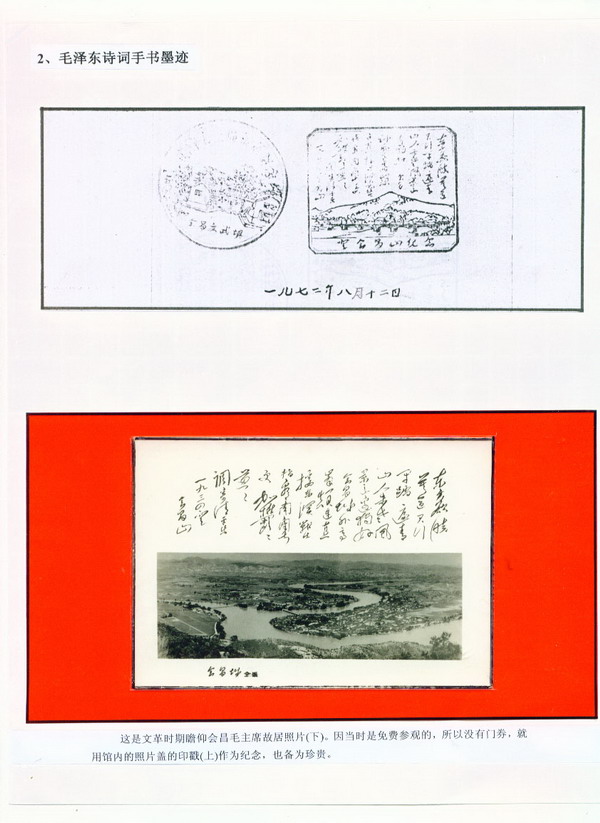 2、毛泽东诗词手书墨迹
会昌文武坝
登会昌山纪念
一九七二年八月十二日
东方欲晓
莫道君行
早踏遍青
山人未老风
景这边独好
会昌城外高
峰颠连直
接东溟战士
指看南粤
更加郁郁
葱葱
调寄清平乐
一九三四年
登会昌山
会昌城全景
这是文革时期瞻仰会昌毛主席故居照片(下)。因当时是免费参观的，所以没有门券，就
用馆内的照片盖的印戳(上)作为纪念，也备为珍贵。